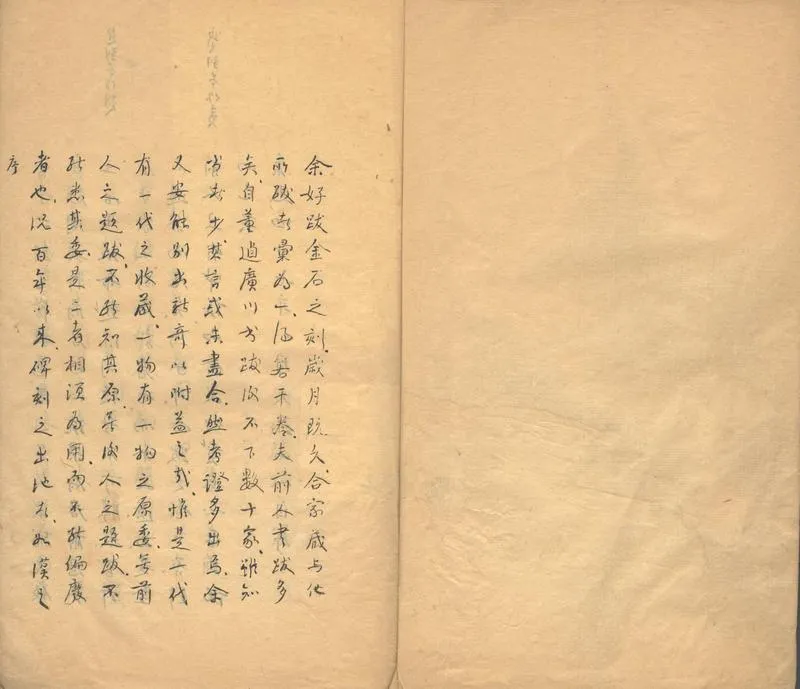 余好跋金石之刻歲月既久合家藏与他
所跋者彙為一得若干卷夫前人書跋多
矣自董逌廣川书跋後不下數十家雖知
者少其言或未盡合然考證多出焉余
又安能别出新奇以附益之哉惟是一代
有一代之收藏一物有一物之原委無前
人之題跋不能知其原無後人之題跋不
能悉其委是二者相須為用而不能偏廢
者也况百年以来碑刻之出地者如漢之
序